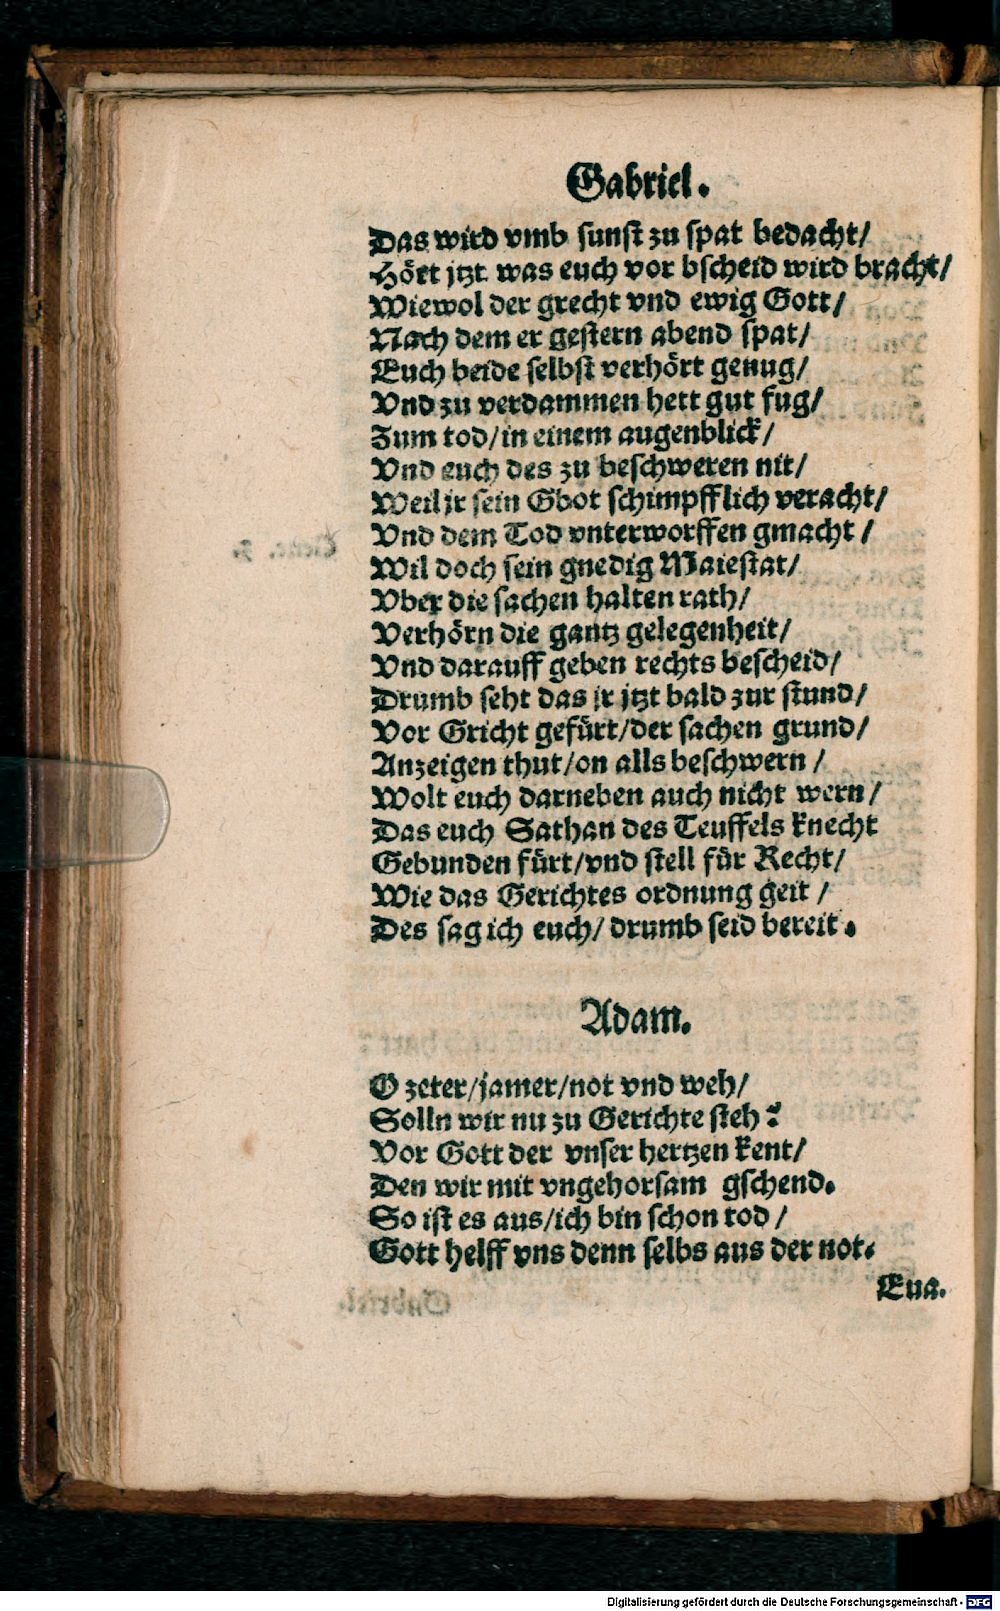 Gabriel.
Das wird vmb sunst zu spat bedacht/
Hört jtzt was euch vor bscheid wird bracht/
Wiewol der grecht vnd ewig Gott/
Nach dem er gestern abend spat/
Euch beide selbst verhört genug/
Vnd zu verdammen hett gut fug/
Zum tod/in einem augenblick/
Vnd euch des zu beschweren nit/
Weil jr sein Gbot schimpfflich veracht/
Vnd dem Tod vnterworffen gmacht/
Wil doch sein gnedig Maiestat/
Vber die sachen halten rath/
Verhörn die gantz gelegenheit/
Vnd darauff geben rechts bescheid/
Drumb seht das jr jtzt bald zur stund/
Vor Gricht gefürt/der sachen grund/
Anzeigen thut/on alls beschwern/
Wolt euch darneben auch nicht wern/
Das euch Sathan des Teuffels knecht
Gebunden fürt/vnd stell für Recht/
Wie das Gerichtes ordnung geit/
Des sag ich euch/drumb seid bereit.
Adam.
O zeter/jamer/not vnd weh/
Solln wir nu zu Gerichte steh?
Vor Gott der vnser hertzen kent/
Den wir mit vngehorsam gschend.
So ist es aus/ich bin schon tod/
Gott helff vns denn selbs aus der not.
Eua.
Digitalisierung gefördert durch die Deutsche Forschungsgemeinschaft - DFG